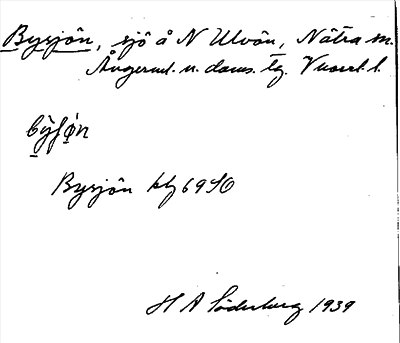 Bysjön, sjö å N Ulvön, Nätra sn.
Ångerml. n. doms. tg. Vnorrl. l.
Bysjön kbl 69SO
H A Söderberg 1939